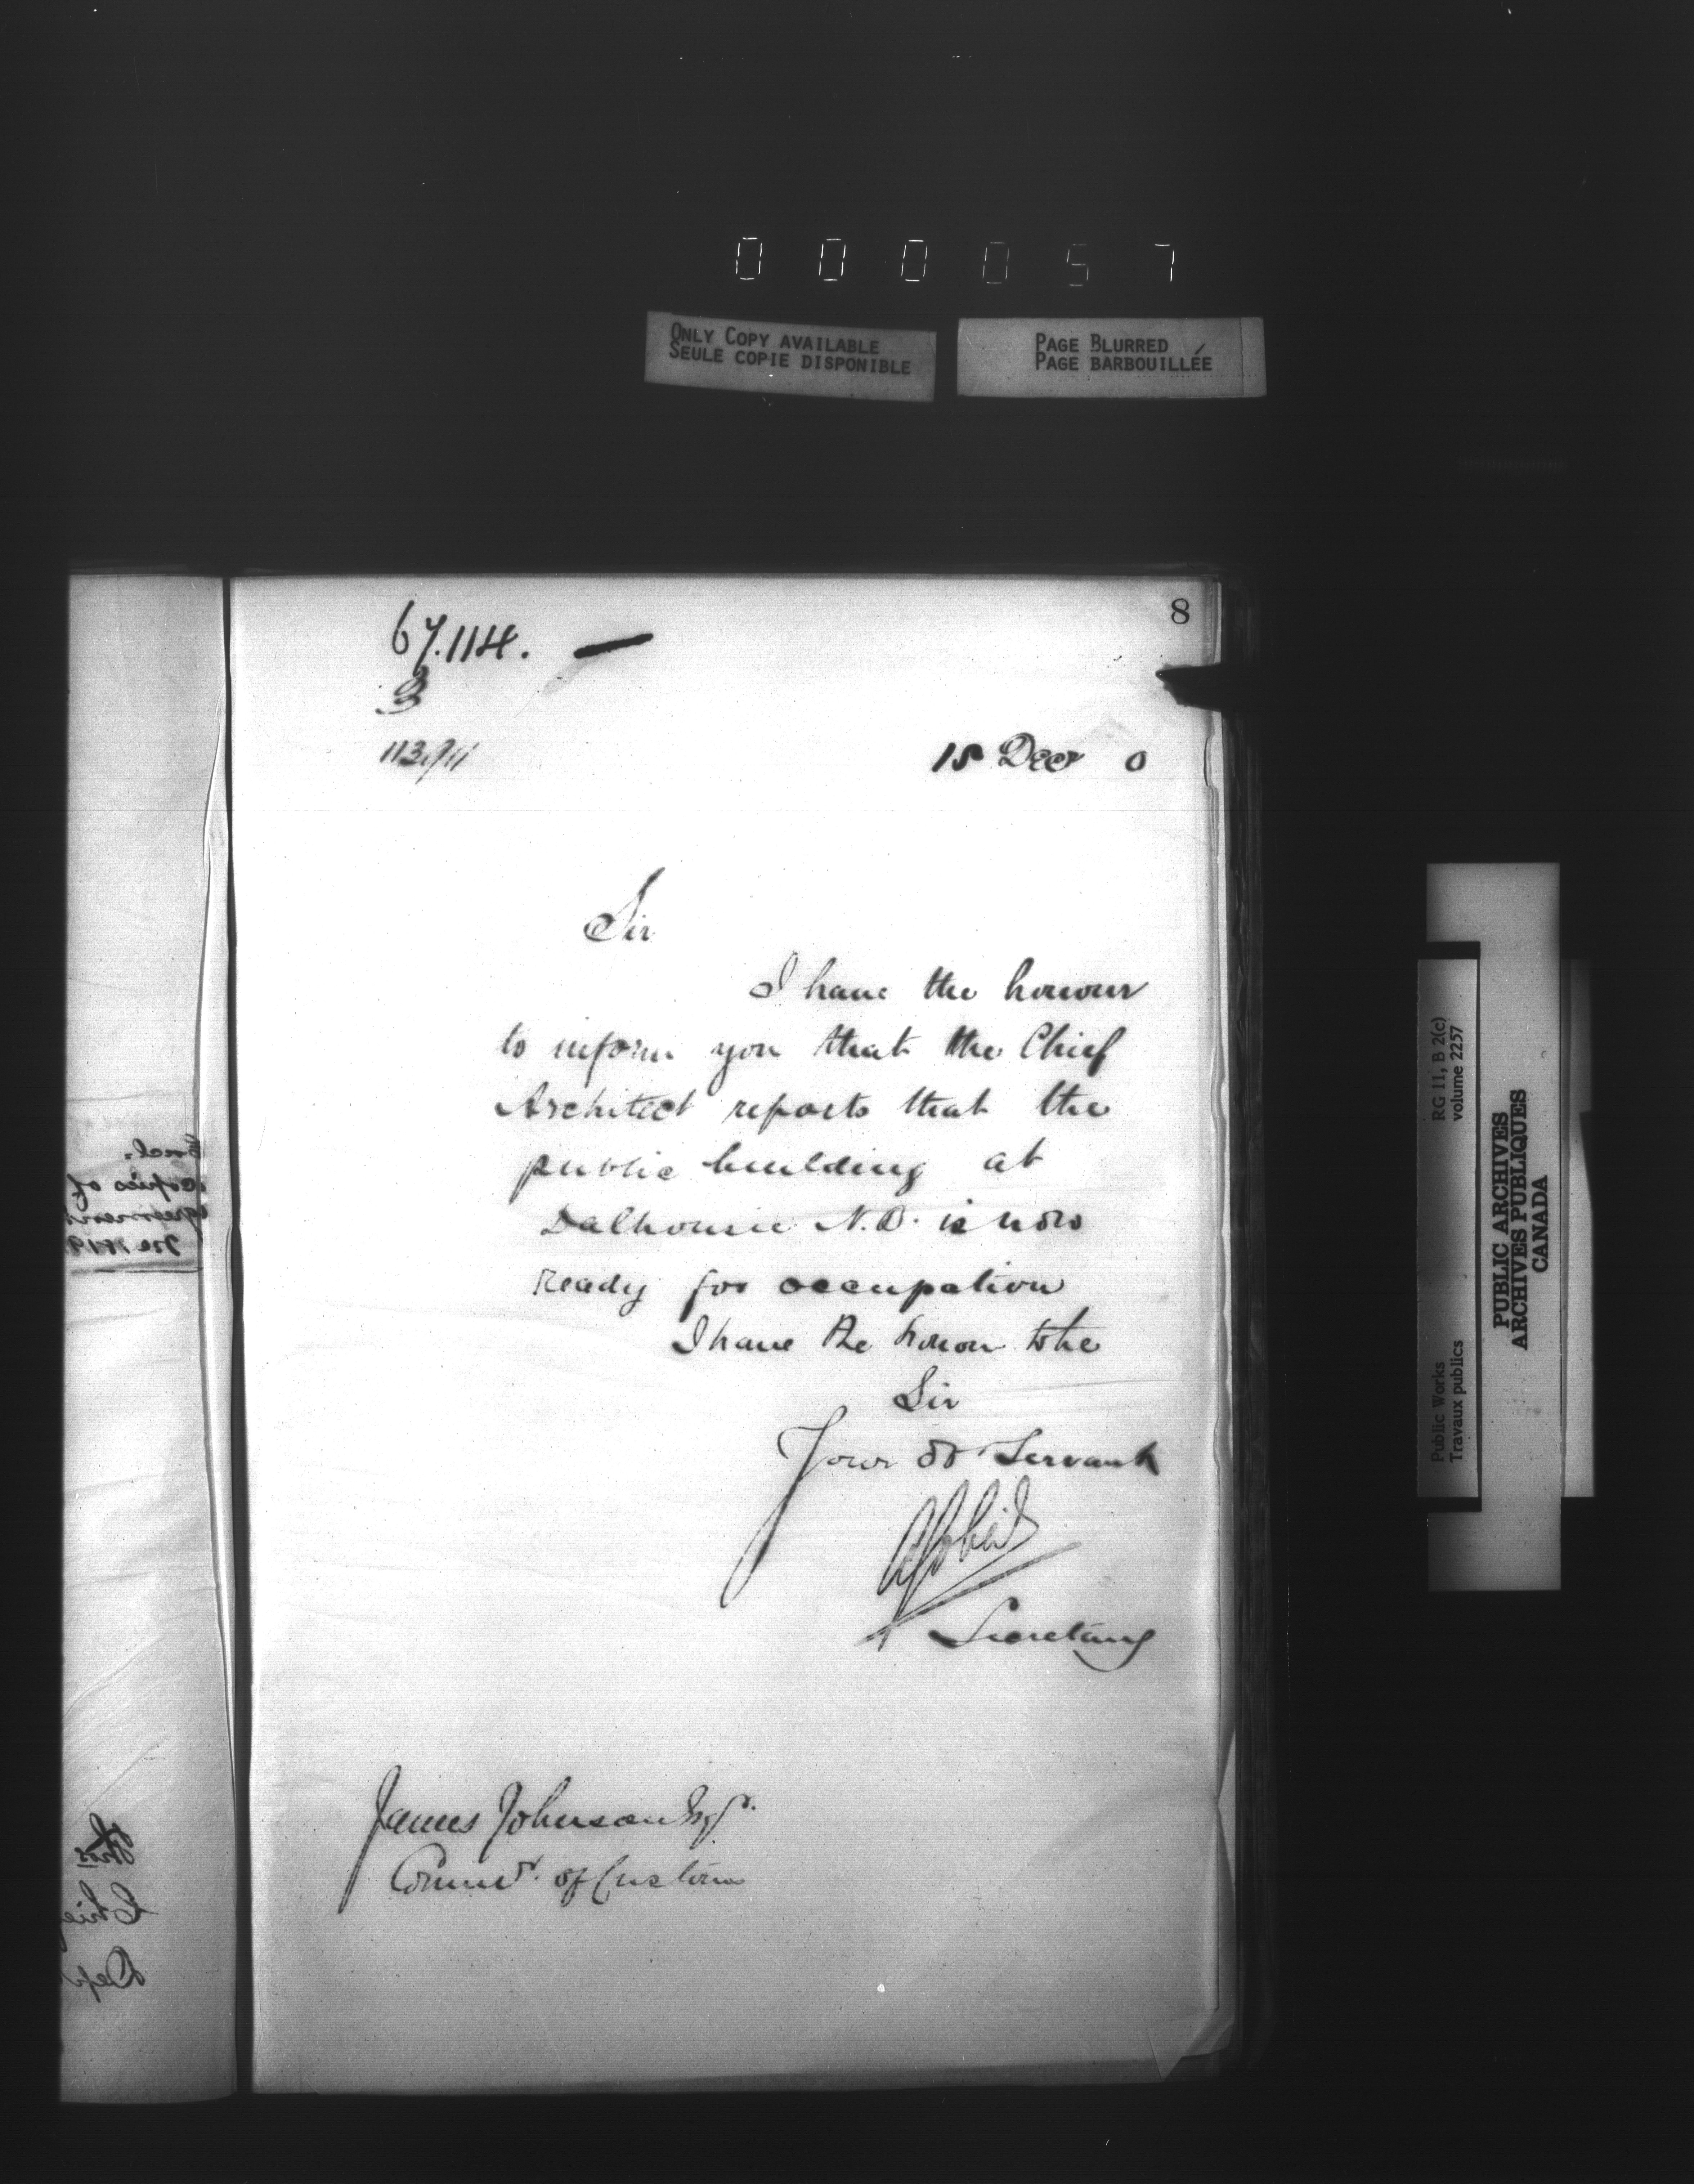 000057
ONLY COPY AVAILABLE
SEULE COPIE DISPONIBLE
PAGE BLURRED
PAGE BARBOUILLÉE
8
67.114.
3
15 Decr 0
Sir
I have the honour
to inform you that the Chief
Architect reports that the
public building at
Dalhousie N.B. is now
ready for occupation
I have the honour to be
Sir
Your ob Servant
Secretary
James Johnson Esqr.
Commr. of Customs
Encl.
copies of
Chief
Dep
RG 11, B 2(c)
volume 2257
Public Works
Travaux publics
PUBLIC ARCHIVES
ARCHIVES PUBLIQUES
CANADA